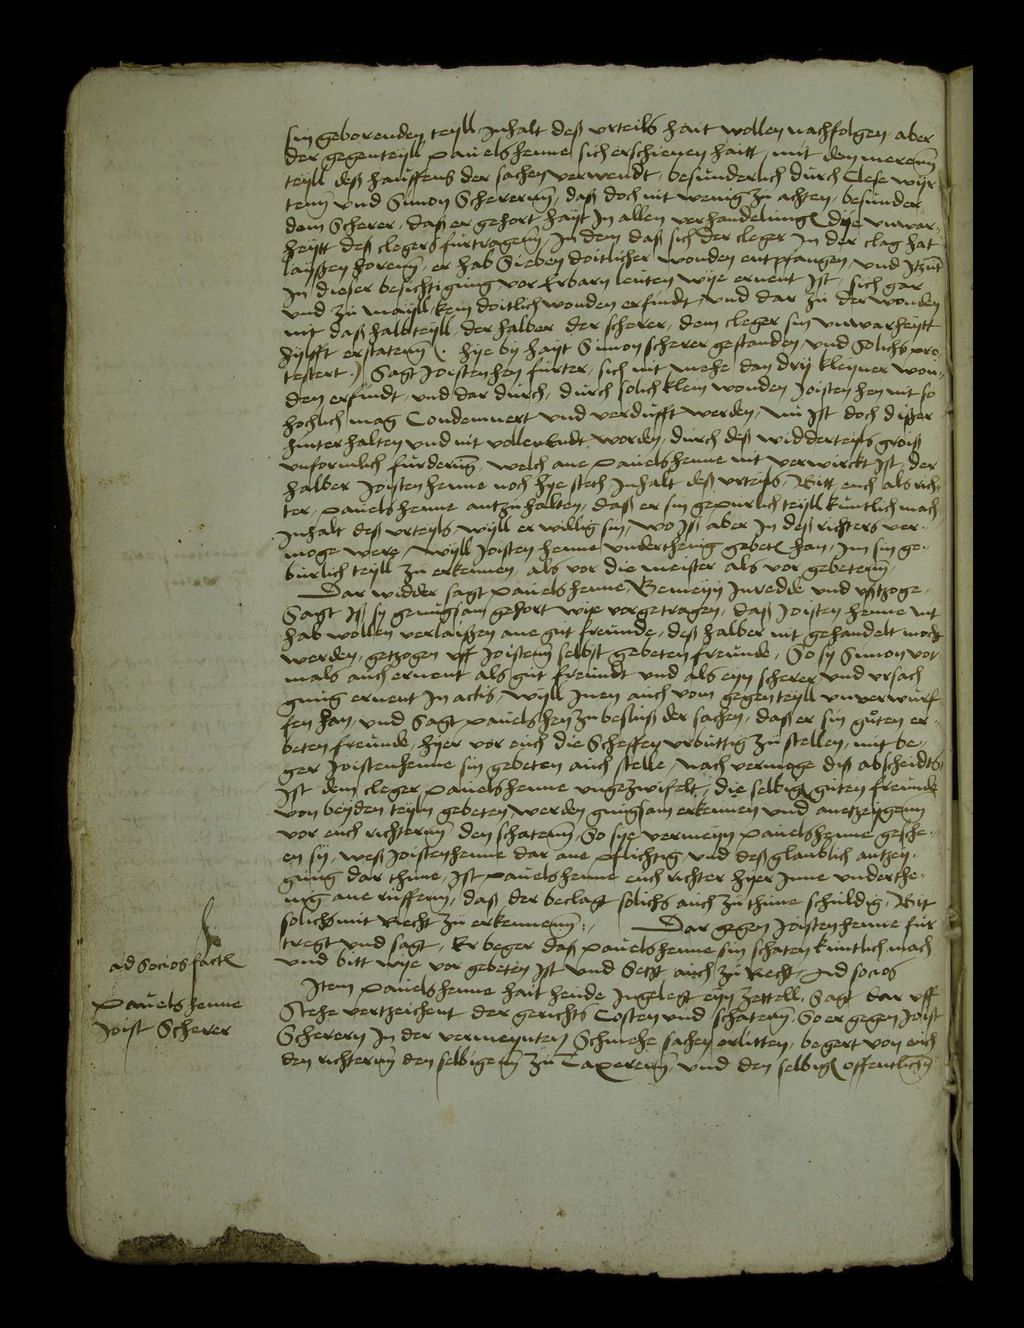 sin geborenden teyll, Inhalt deß urteils hait wollen nachfolgen, aber
der gegenteyll pauels henne sich erschienen haitt, mit dem mererm
teyll deß hauffens der sachen verwendt, besunderlich durch Clese wyr
tenn und Simon Schererm, daß doch nit wenig zu achten, besunder
dem Scherer, daß er gehort hayt In allen verhandelung, dye unwar,
heytt deß clegers furtragens, In dem daß sich der cleger In der clag hat
laißen horenn, er hab Sieben doitlicher wonden entpfangen, und Itzut
In dieser besichtigung vor Erbarn leuten wye ernent Ist, sich gar
und zu maill kein doitlich wonden erfindt, und dar zu der wonden
nit daß halbteyll, der halber der scherer, dem cleger sin unwarheytt
hylfft erstatenn (. Hye by hayt Simon scherer gestanden, und Solichs pro
testert .) Sagt Joisten hen furter, sich nit mehe dan dry kleyner won,
den erfindt, und dar durch, durch solich klein wonden, Joisten hen nit so
hochlich mag Condemnert und verdufft werden, nu Ist doch dißer
hinterhalten und nit vollendt worden, durch deß widderteyls groiß
unformlich furderung, welch ane pauels henne nit verwirckt Ist, der
halber Joisten henne noch hye stett Inhalt deß urteils, Bitt euch als rich,
ter, pauels henne antzuhalten, daß er sin gepurlich teyll kuntlich mach
Inhalt deß urteyls, wyll er willig sin, wo Iß aber In deß richters ver,
moge were, wyll Joisten henne underthenig gebeten han, Im sin ge,
burlich teyll zu erkennen, als vor die meister als vor gebetenn,
Dar widder sagt pauels henne, Bemeyn Inredde und ußtzoge,
Sagt Iß sy genugsam gehort wye vorgetragen, daß Joisten henne nit
hab wollen verlaißen ane gut freunde, deß halber nit gehandelt mocht
werden, getzogen uff Joistenn selbst gebeten freunde, So sy Simon vor
mals auch ernent als gut freundt und als eyn scherer und ursach
gnug ernent In actis, wyll Inen auch vom gegenteyll unverwurf,
fen han, und Sagt pauels hen zu besluß der sachen, daß er sin guten er,
beten freunde, hyer vor euch die Scheffen urbuttig zu stellen, mit be,
ger Joistenhenne sin gebeten auch stelle, nach vermoge diß abscheidts,
Ist dem cleger pauels henne ungezwifelt, die selbigen guten freunde
von beyden teyln gebeten, werden gnugsam erkennen und anetzeygenn
vor euch richternn den schatenn, So sye vermeyn pauels henne gesche,
en sy, weß Joistenhenne dar ane pflichtig und deß glaublich antzey,
gung dar thune, Ist pauels henne euch richter hyer Inne underthe,
nig ane ruffenn, daß der beclagt solichs auch zu thune schuldig, Bit
solichs mit Recht zu erkennenn, Dar gegen Joisten henne fur
tregt und sagt, Er beger daß pauels henne sin schaten kuntlich mach
und bitt wye vor gebeten Ist und Setzt auch zu Recht, Ad socios
ad socios fact
Item pauels henne hait heude Ingelegt eyn Zettell, Sagt dar uff
pauels henne
Joist Scherer
Stehe vertzeichent der gerichts Costen und schatenn, So er gegen Joist
Scherern In der vermeynten Schmehe sachen erlitten, begert von euch
den richternn den selbigenn zu Taxerenn, und den selbigen offentlichen